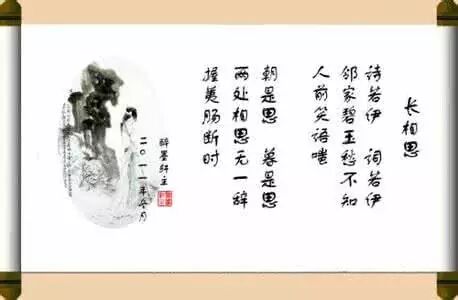 长相思
诗若伊 词若伊
邻家碧玉愁不知
人前笑语嗤
朝是思 暮是思
两处相思无一辞
握荑肠断时
醉墨轩主
二〇一一年冬月